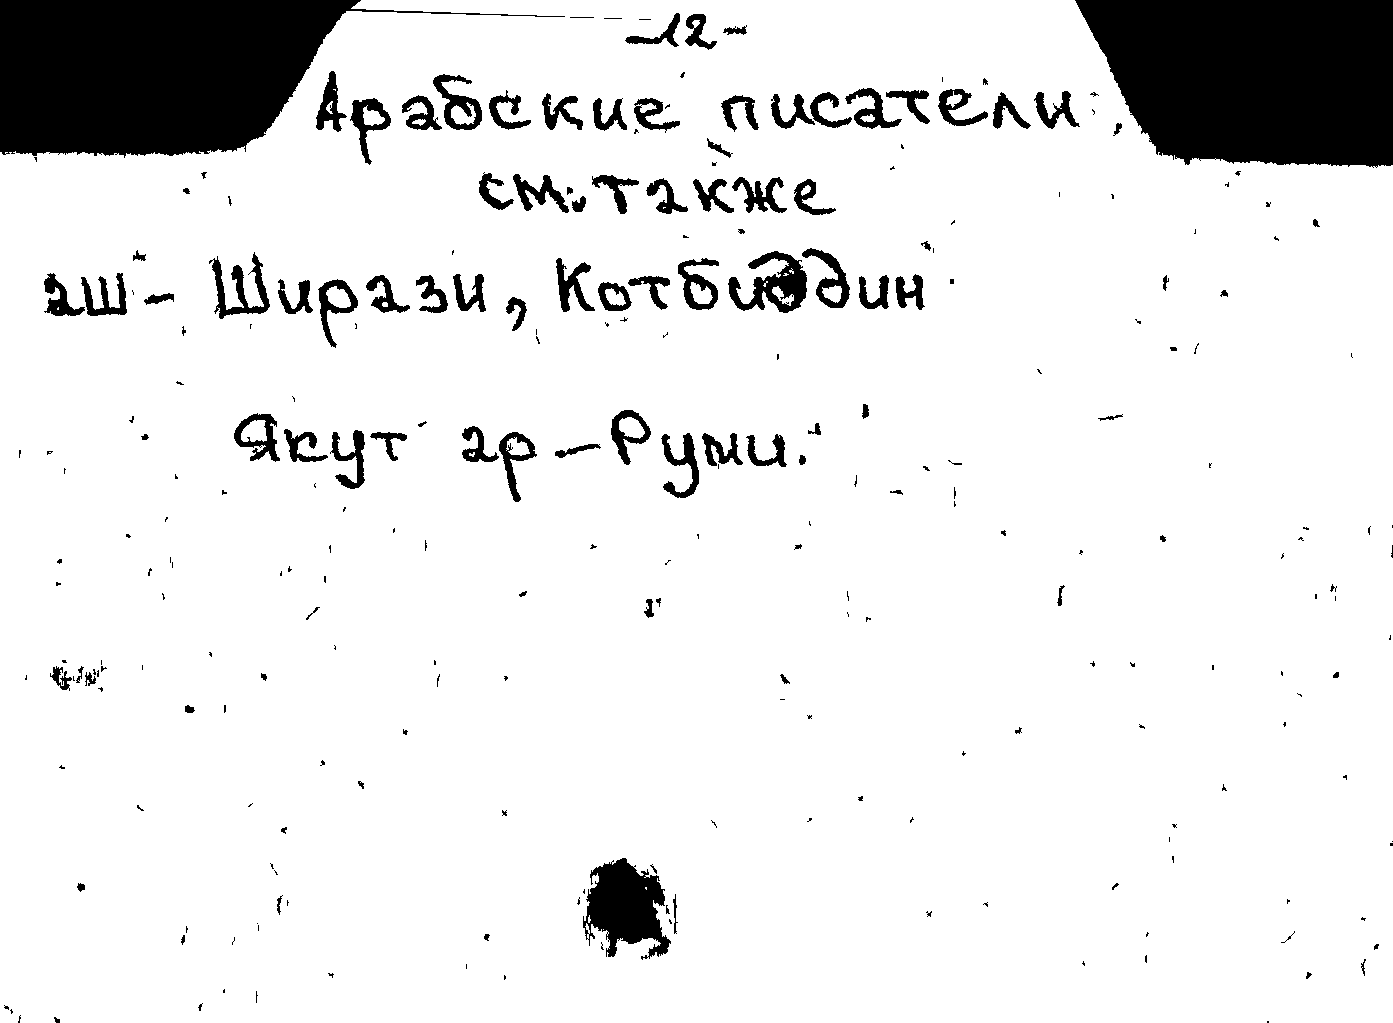 -12-
Арабские писатели,
см. также
аш- Ширази, Котбиддин
Якут ар-Руми.